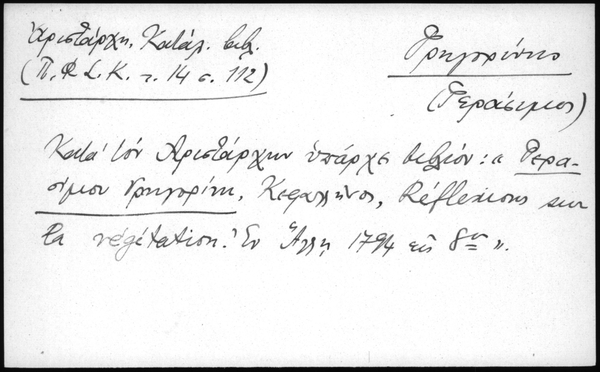 Ἀριστάρχη, Κατάλ. βιβλ.
(Π.Φ.Σ.Κ. τ. 14 σ. 112)
Γρηγορίνης
(Γεράσιμος)
Κατὰ τὸν Ἀριστάρχην ὑπάρχει βιβλίον: « Γερα-
σίμου Γρηγορίνη, Κεφαλλῆνος, Réflexions sur
la végétation. Ἐν Ἅλλῃ 1794 εἰς 8ον ».